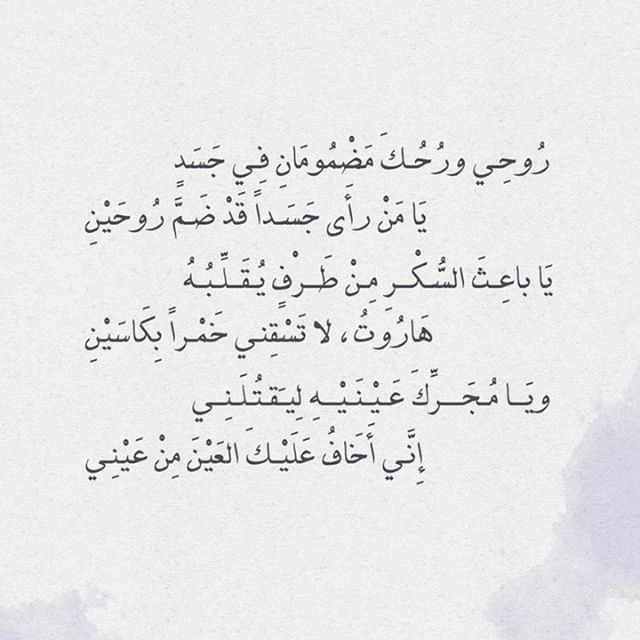 رُوحِي ورُحُكَ مَضْمُومَانِ فِي جَسَدٍ
يَا مَنْ رأَى جَسَداً قَدْ ضَمَّ رُوحَيْنِ
يَا باعِثَ السُّكْرِ مِنْ طَرْفٍ يُقَلِّبُهُ
هَارُوتُ، لا تَسْقِني خَمْراً بِكَاسَيْنِ
ويَا مُجَرِّكَ عَيْنَيْهِ لِيَقتُلَنِي
إِنَّي أَخَافُ عَلَيْكَ العَيْنَ مِنْ عَيْنِي